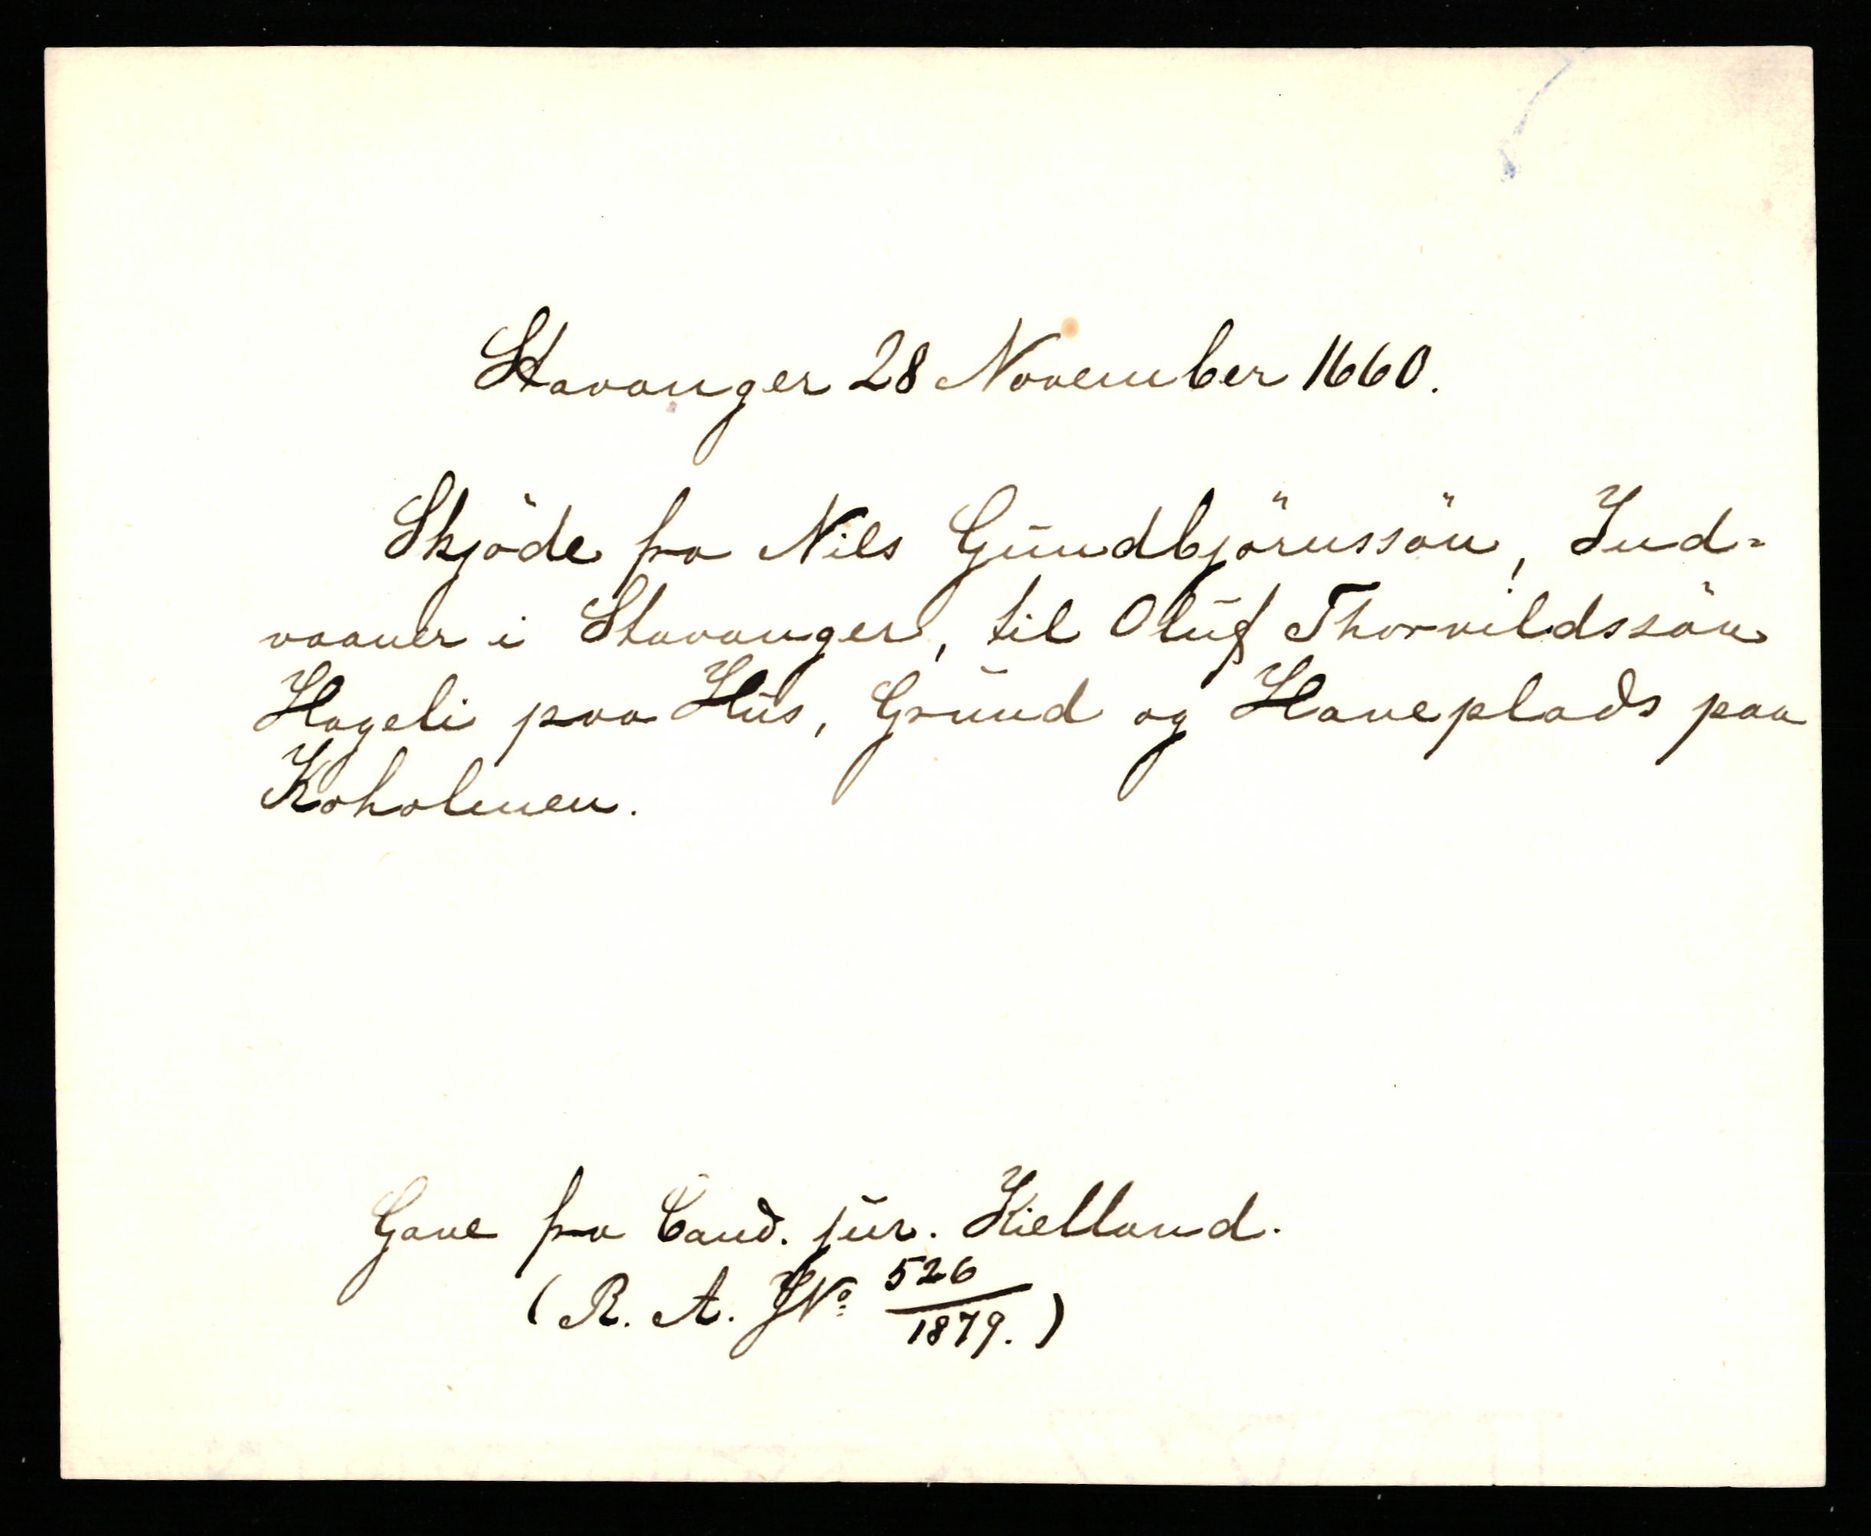 Stavanger 28 November 1660.
Skjöde fra Nils Gundbjörnssön, Ind-
vaaner i Stavanger, til Oluf Thorvildssön
Hageli paa Hus, Grund og Haveplads paa
Koholmen.
Gave fra Cand. jur. Kielland.
(R. A. J № 526
1879.)